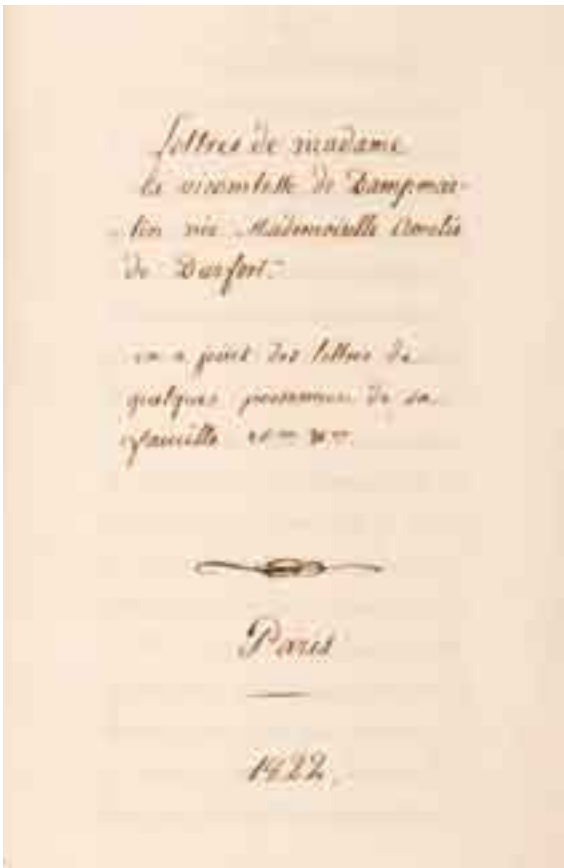 Lettres de madame
la vicomtesse de Dampmar-
tin née Mademoiselle Amelie
de Durfort.
on a joint des lettres de
quelques personnes de sa
famille
Paris
1822.